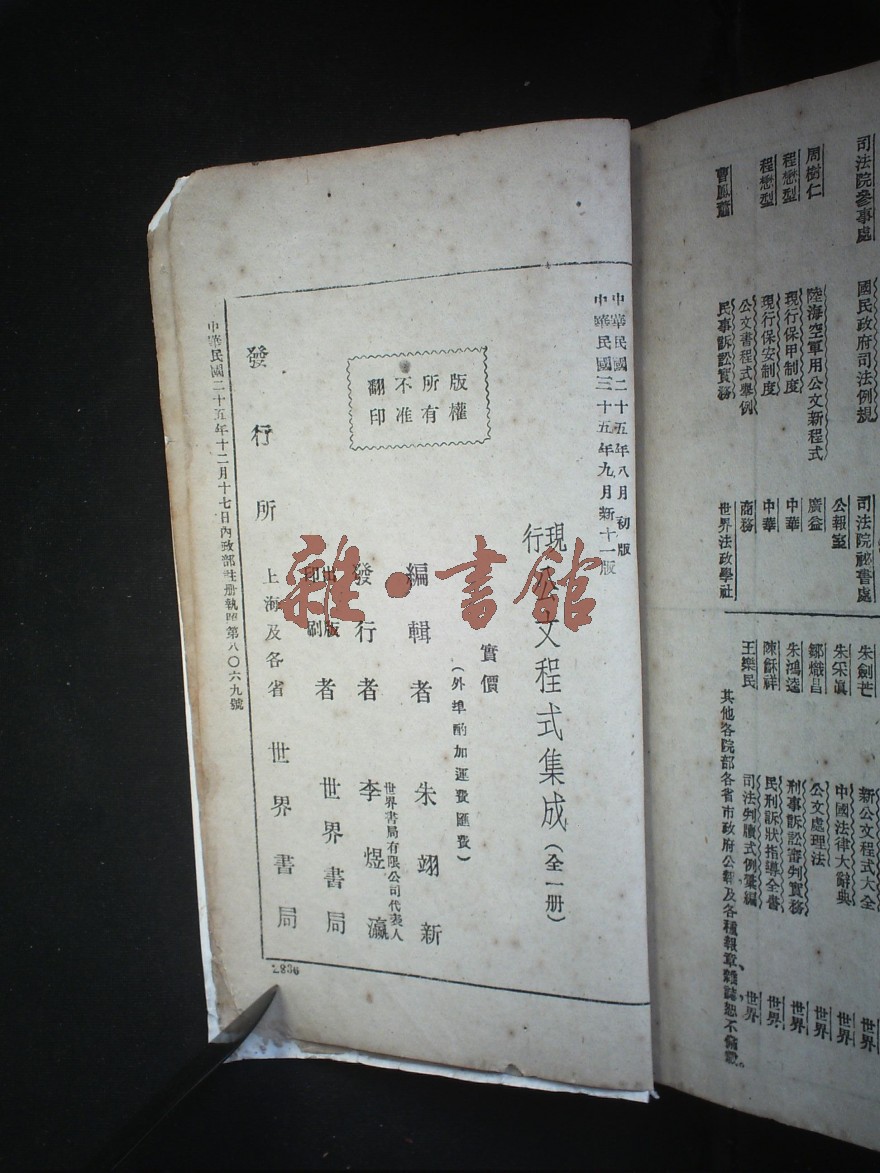 司法院參事處 國民政府司法例規 司法院祕書處
公報室
周樹仁 陸海空軍用公文新程式 廣益
程懋型 現行保甲制度 中華
程懋型 現行保安制度 中華
公文書程式舉例 商務
民事訴訟實務 世界法政學社
朱劍芒 新公文程式大全 世界
朱采真 中國法律大辭典 世界
鄒熾昌 公文處理法 世界
朱鴻達 刑事訴訟審判實務 世界
陳穌祥 民刑訴狀指導全書 世界
王樂民 司法判牘式例彙編 世界
其他各院部各省市政府公報及各種報章、雜誌、恕不備載。
中華民國二十五年八月初版
中華民國三十五年九月新十一版
現行公文程式集成(全一册)
實價
(外埠酌加運費匯費)
版權所有不准翻印
編輯者 朱翊新
發行者 世界書局有限公司代表人 李煜瀛
出版印刷者 世界書局
發行所 上海及各省 世界書局
中華民國二十五年十二月十七日內政部註册執照第八〇六九號
雜·書館